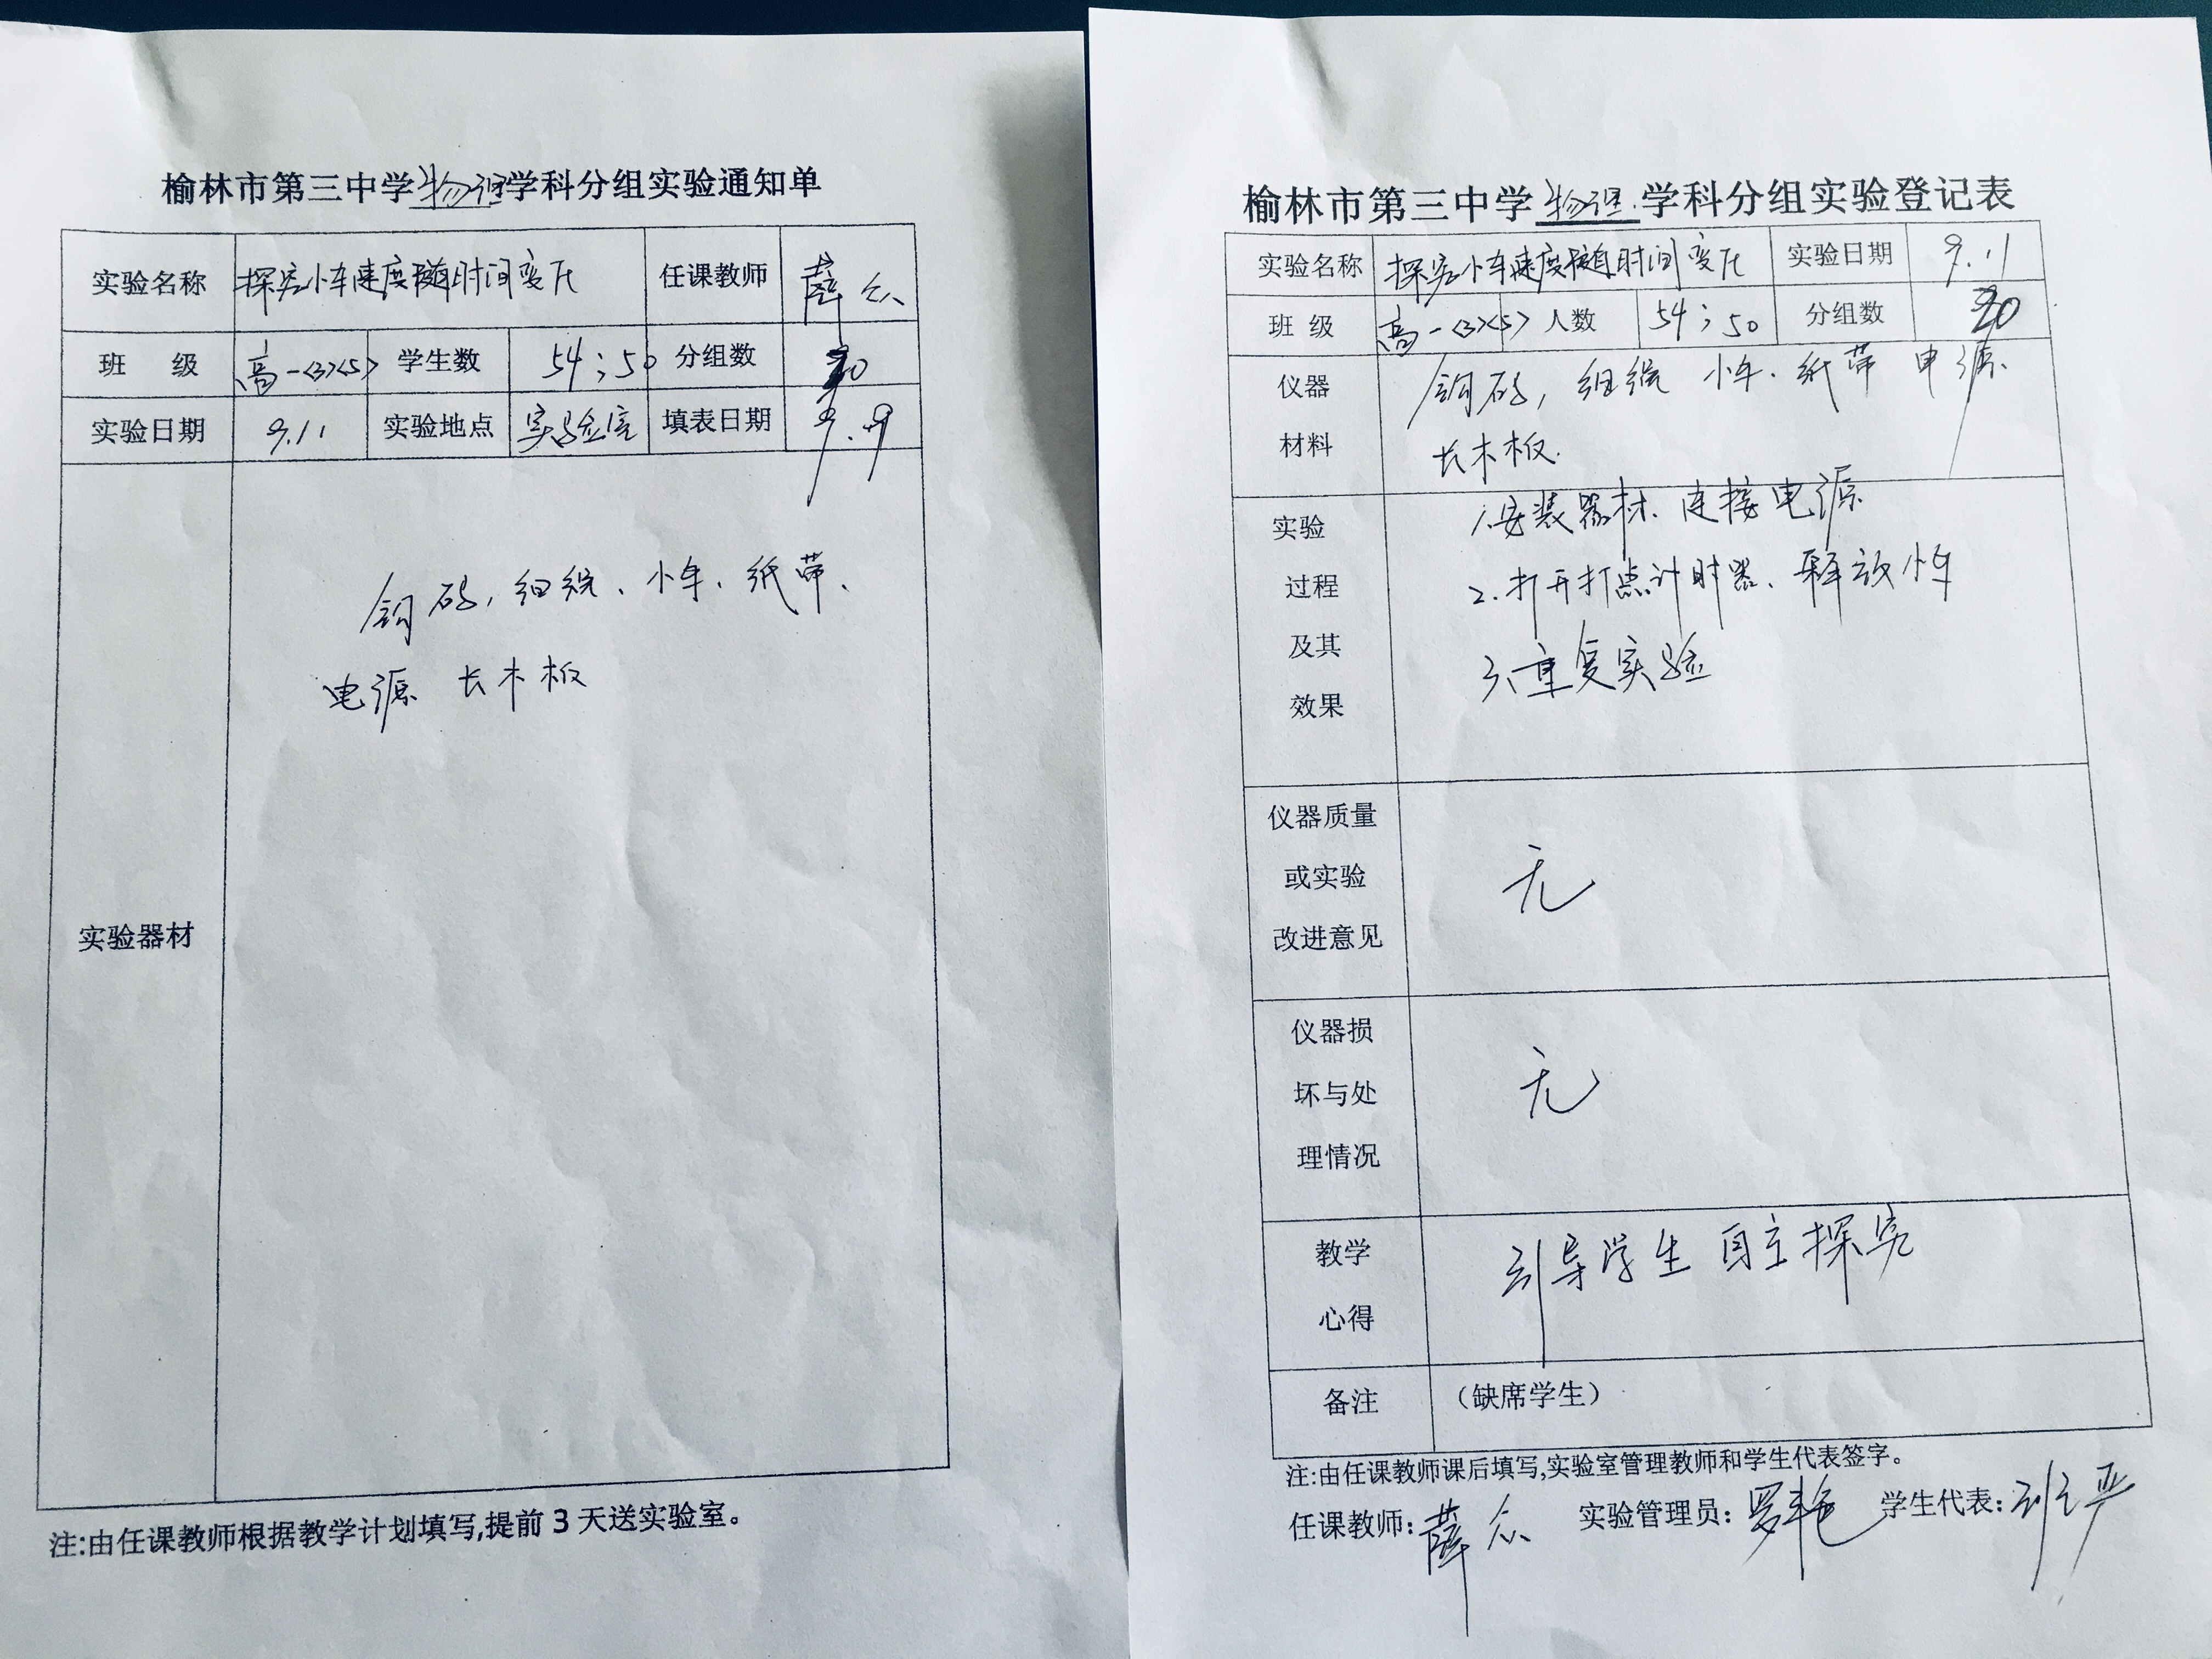 榆林市第三中学物理学科分组实验通知单
实验名称 探究小车速度随时间变化 任课教师 薛众
班 级 高一<3><5> 学生数 54；50 分组数 20
实验日期 9.11 实验地点 实验室 填表日期 9.9
实验器材
钩码，细线、小车、纸带、
电源 长木板
注:由任课教师根据教学计划填写,提前3天送实验室。
榆林市第三中学物理学科分组实验登记表
实验名称 探究小车速度随时间变化 实验日期 9.11
班 级 高一<3><5> 人数 54；50 分组数 20
仪器
材料
钩码，细线 小车、纸带 电源
长木板.
实验
过程
及其
效果
1.安装器材、连接电源
2.打开打点计时器、释放小车
3、重复实验
仪器质量
或实验
改进意见
无
仪器损
坏与处
理情况
无
教学
心得
引导学生自主探究
备注 （缺席学生）
注:由任课教师课后填写,实验室管理教师和学生代表签字。
任课教师: 薛众 实验管理员: 学生代表: